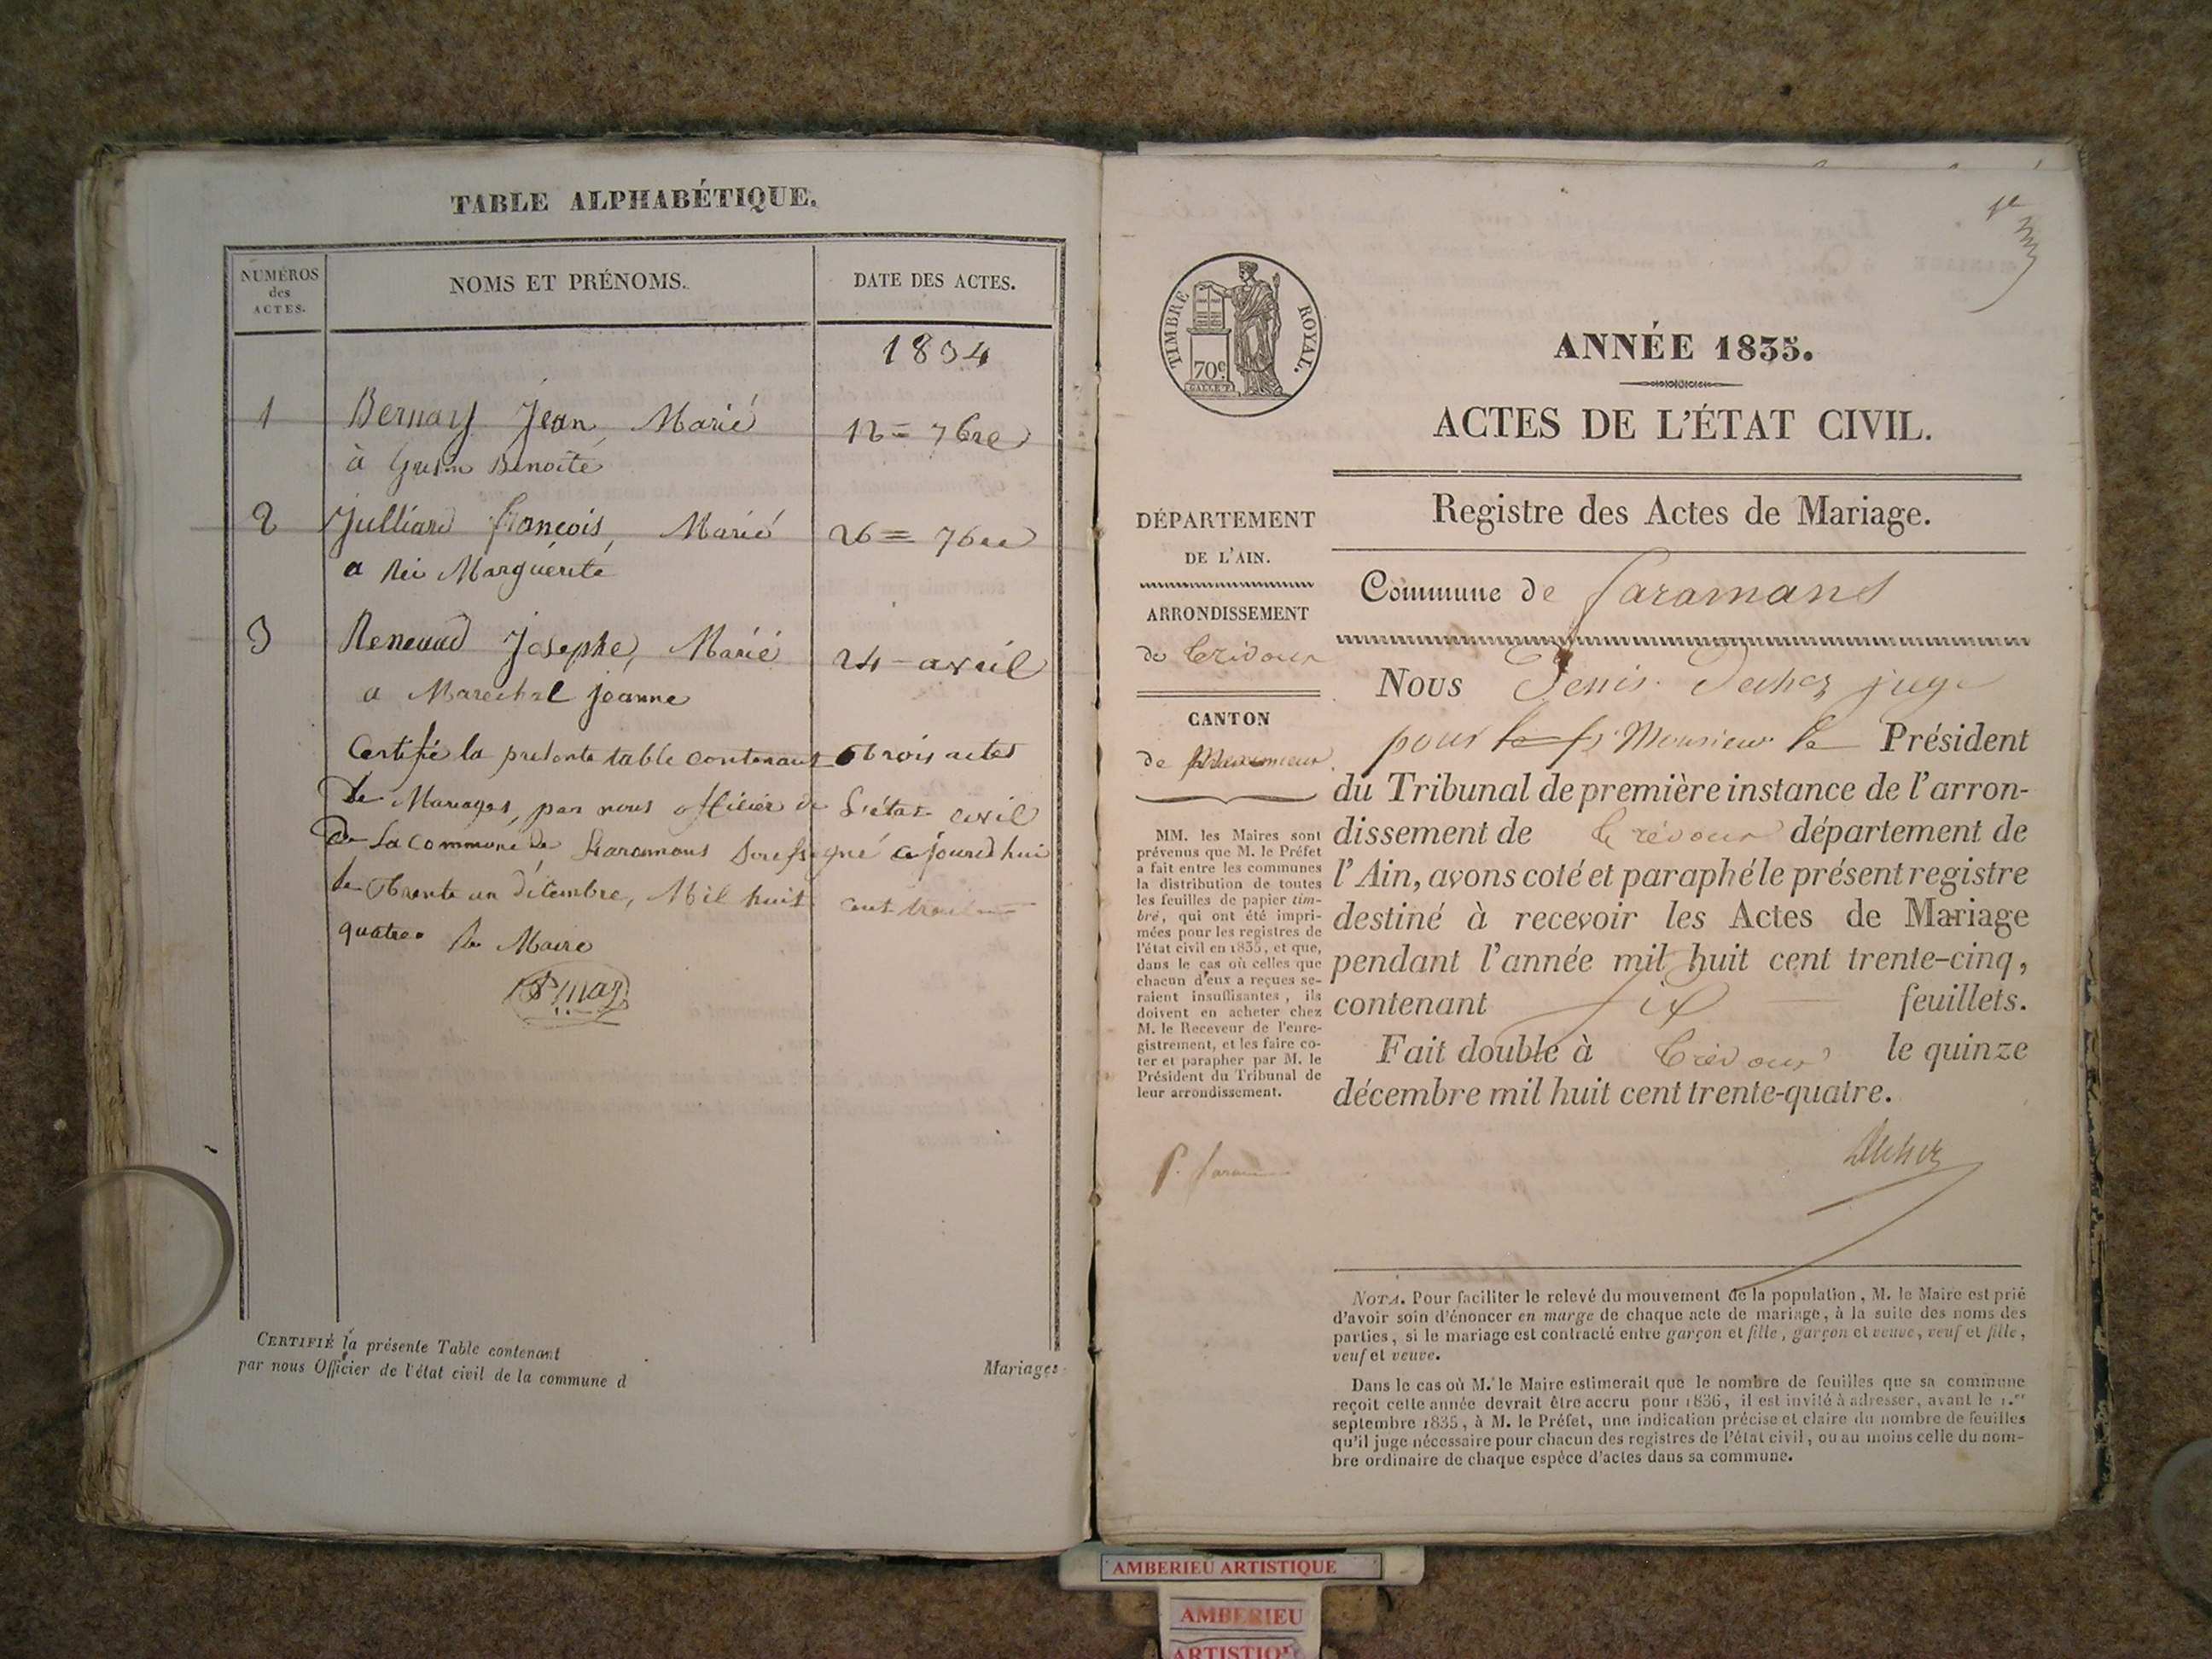 TABLE ALPHABÉTIQUE.
NUMÉROS
des
ACTES.
NOMS ET PRÉNOMS.
DATE DES ACTES.
1834
1 Bernay Jean, Marié 12 = 7bre
à Benoite
2 Julliard françois, Marié 26 = 7bre
a Rei Marguérite
3 Renaud Josephe, Marié 24 - avril
a Marechal jeanne
Certifié la présente table contenant trois actes
De Mariages, par nous officier de L'état civil
De La Commune de faramans Soussigné Cejourd'hui
le trente un décembre, Mil huit cent trente
quatre. Le Maire
CERTIFIÉ la présente Table contenant
Mariages
par nous Officier de l'état civil de la commune d
1er
TIMBRE ROYAL.
70c
ANNÉE 1835.
ACTES DE L'ÉTAT CIVIL.
Registre des Actes de Mariage.
DÉPARTEMENT
DE L'AIN.
ARRONDISSEMENT
de Trévoux
CANTON
de Meximieux
MM. les Maires sont
prévenus que M. le Préfet
a fait entre les communes
la distribution de toutes
les feuilles de papier tim-
bré, qui ont été impri-
mées pour les registres de
l'état civil en 1835, et que,
dans le cas où celles que
chacun d'eux a reçues se-
raient insuffisantes, ils
doivent en acheter chez
M. le Receveur de l'enre-
gistrement, et les faire co-
ter et parapher par M. le
Président du Tribunal de
leur arrondissement.
Commune de faramans
Nous Denis Dechez juge
pour Monsieur le Président
du Tribunal de première instance de l'arron-
dissement de Trévoux département de
l'Ain, avons coté et paraphé le présent registre
destiné à recevoir les Actes de Mariage
pendant l'année mil huit cent trente-cinq,
contenant six feuillets.
Fait double à Trévoux le quinze
décembre mil huit cent trente-quatre.
Dechez
NOTA. Pour faciliter le relevé du mouvement de la population, M. le Maire est prié
d'avoir soin d'énoncer en marge de chaque acte de mariage, à la suite des noms des
parties, si le mariage est contracté entre garçon et fille, garçon et veuve, veuf et fille,
veuf et veuve.
Dans le cas où M. le Maire estimerait que le nombre de feuilles que sa commune
reçoit cette année devrait être accru pour 1836, il est invité à adresser, avant le 1.er
septembre 1835, à M. le Préfet, une indication précise et claire du nombre de feuilles
qu'il juge nécessaire pour chacun des registres de l'état civil, ou au moins celle du nom-
bre ordinaire de chaque espèce d'actes dans sa commune.
AMBERIEU ARTISTIQUE
AMBERIEU
ARTISTIQUE